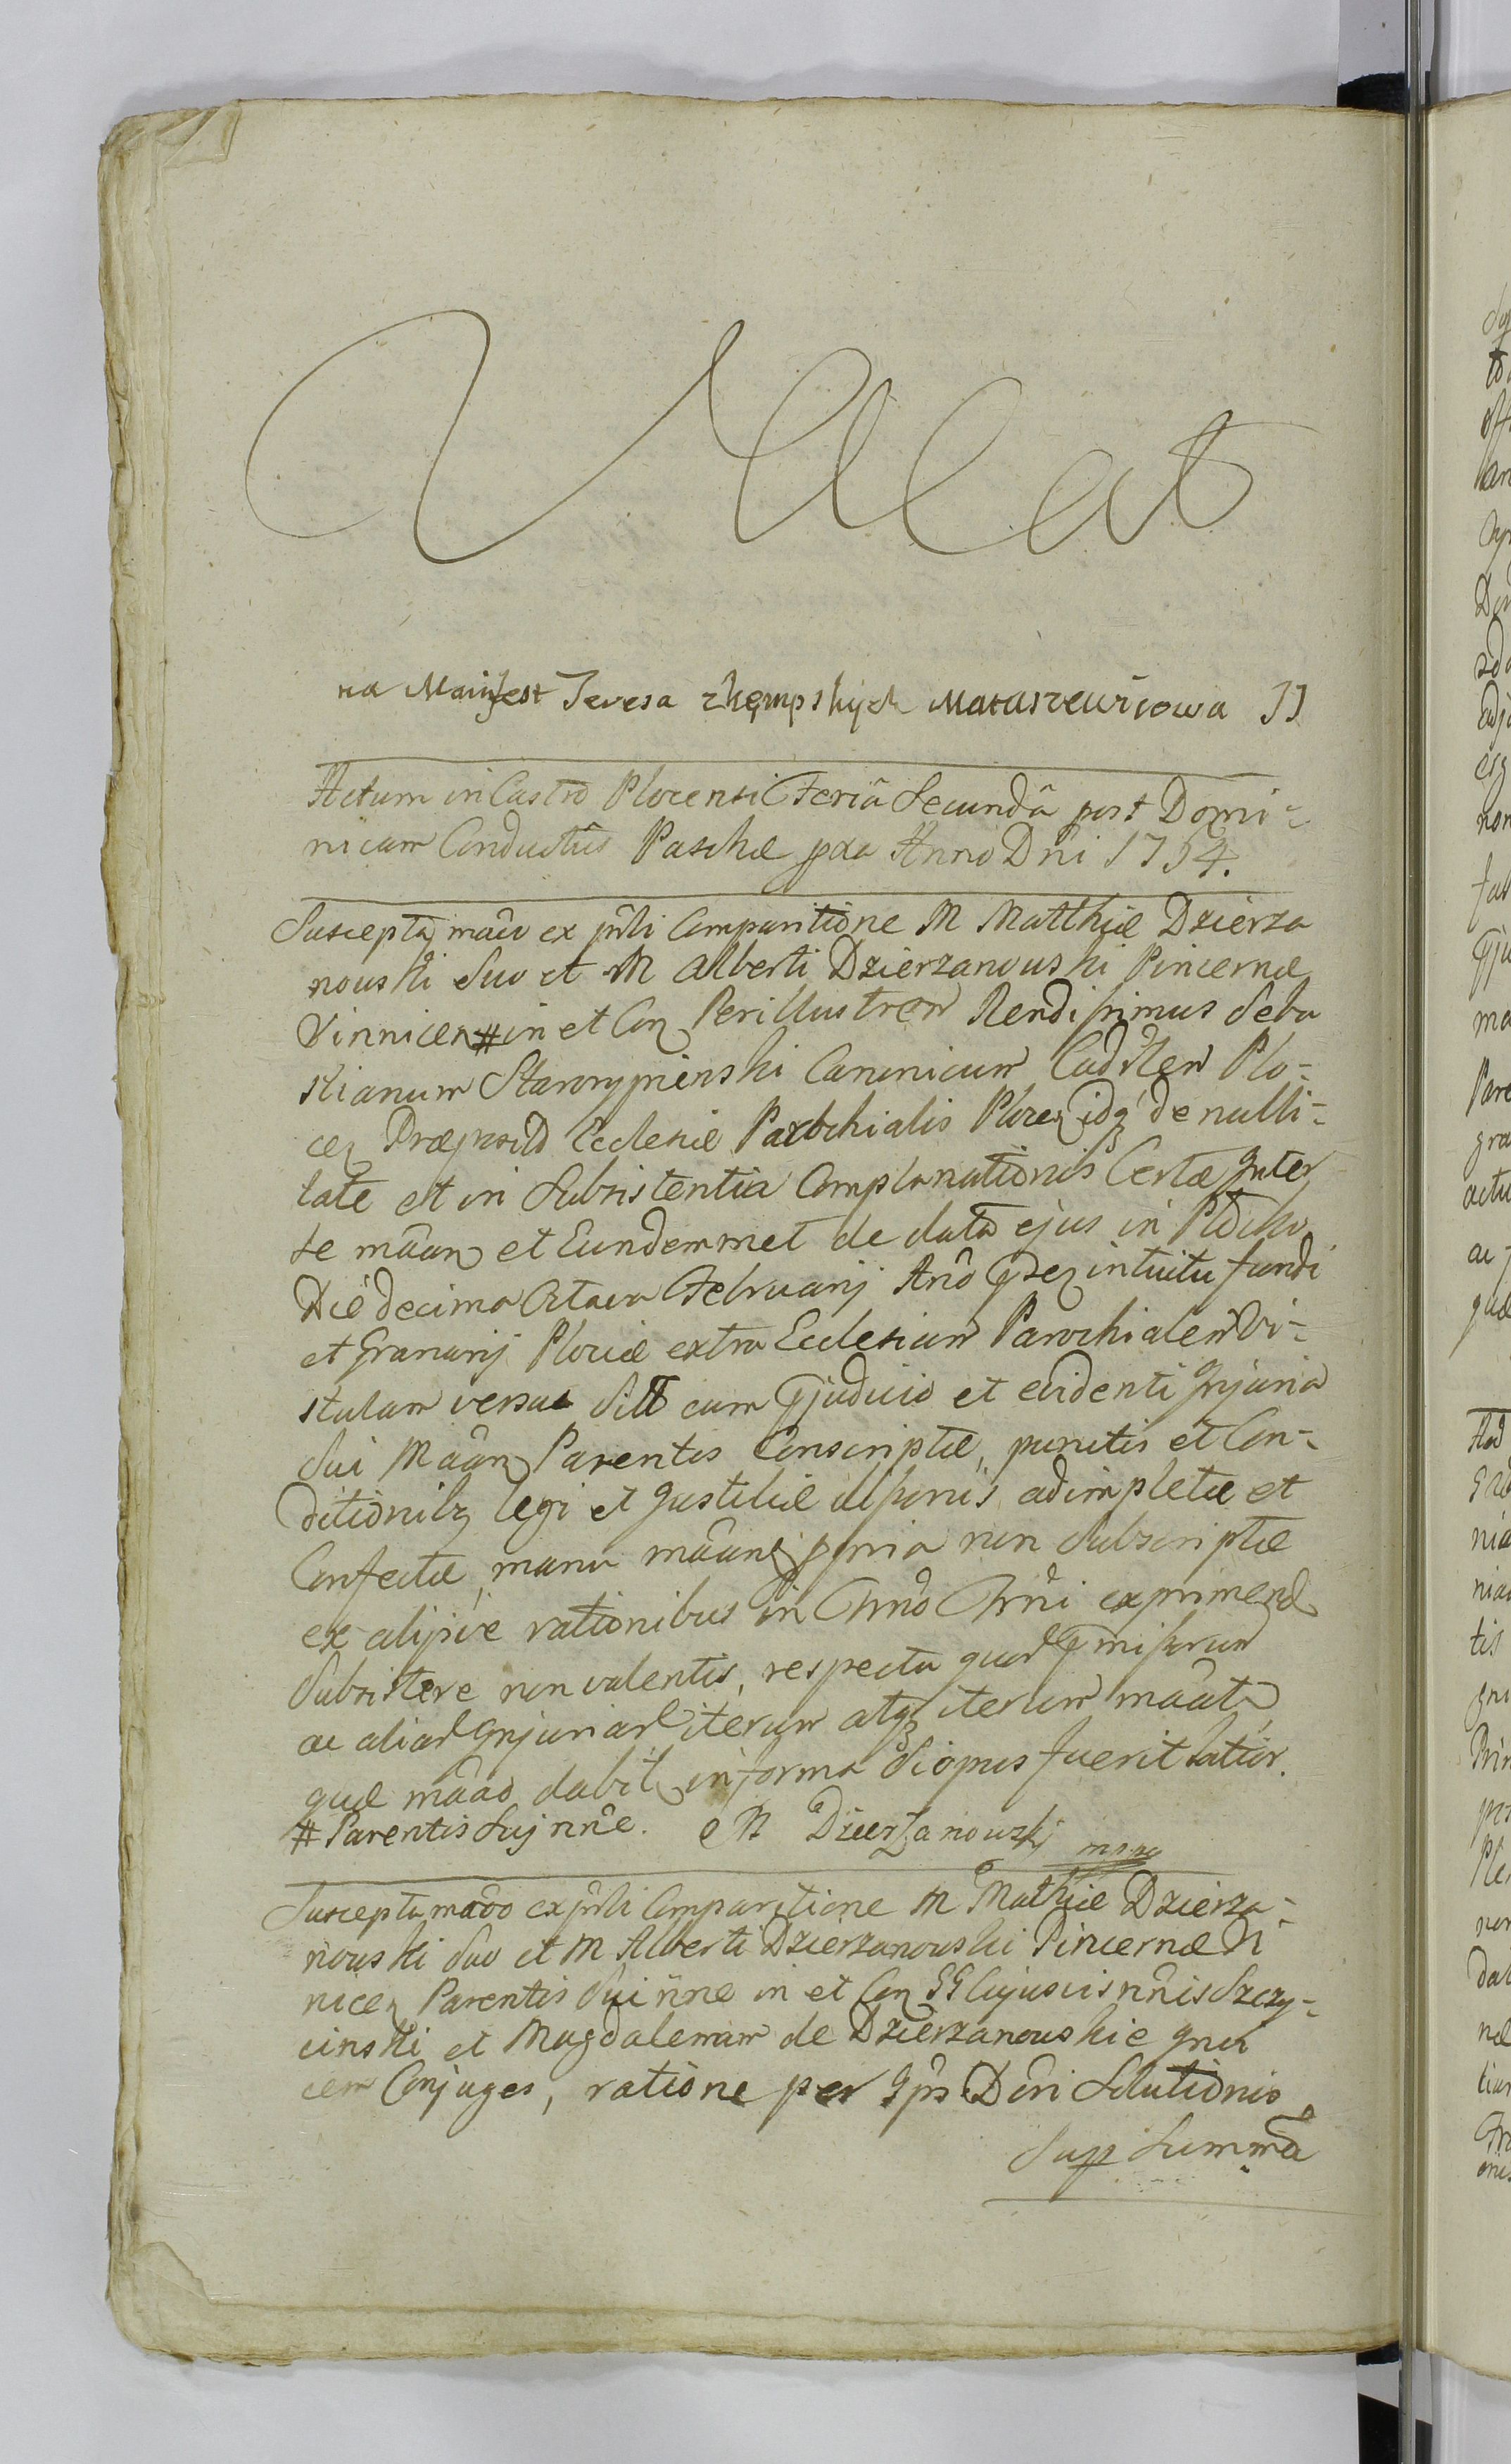 Vacat
na Manifest Teresa z kęmpskych Matuszewicowa JJ
Actum in Castro Plocensi Feria Secunda post Domi-
nicam Conductus Paschæ pxa Anno Dni 1754.
Suscepta mãdo ex pñli Comparitione M Matthiæ Dzierza
nouski Suo et M Alberti Dzierzanouski Pincernæ
Vinnicen # in et Con Perillustrem Rendissimus Seba
stianum Starorypienski Canonicum Cadtlem Plo-
cen Præposit Ecclesiæ Parochialis Plocen idq de nulli-
tate et in Subsistentia Complanationis Certæ Inter
se mãan et Eundemmet de data ejus in Plocko
Die decima Octava Februarij Anõ Psen intuitu fundi
et Granarij Plociæ extra Ecclesiam Parochialem Vi-
stulam versus Sitt cum Pjudicio et evidenti Injuria
Sui Mãan Parentis Conscriptæ, punctis et Con-
ditionibq legi et Justitiæ alponis adimpletæ et
Confectæ, manu mãan ppria non Subscriptæ
ex alijsve rationibus in Trno Trni exprimend
Subsistere non valentis, respectu quor Pmissorum
ac aliar Injuriar iterum atq iterum mãat
quæ mãao dabit in forma Si opus fuerit latior.
# Parentis Suj nñe. M Dzierzanowskj mpp
Suscepta mãdo ex pñli Comparitione M Mathiæ Dzierza-
nouski Suo et M Alberti Dzierzanouski Pincernæ Vi
nicen Parentis Sui ñne in et Con GG Cujusvis nñis Szczy-
cinski et Magdalenam de Dzierzanouskie gnvi
cem Conjuges, ratione per Ips Dñi Solutionis
Supp Summa